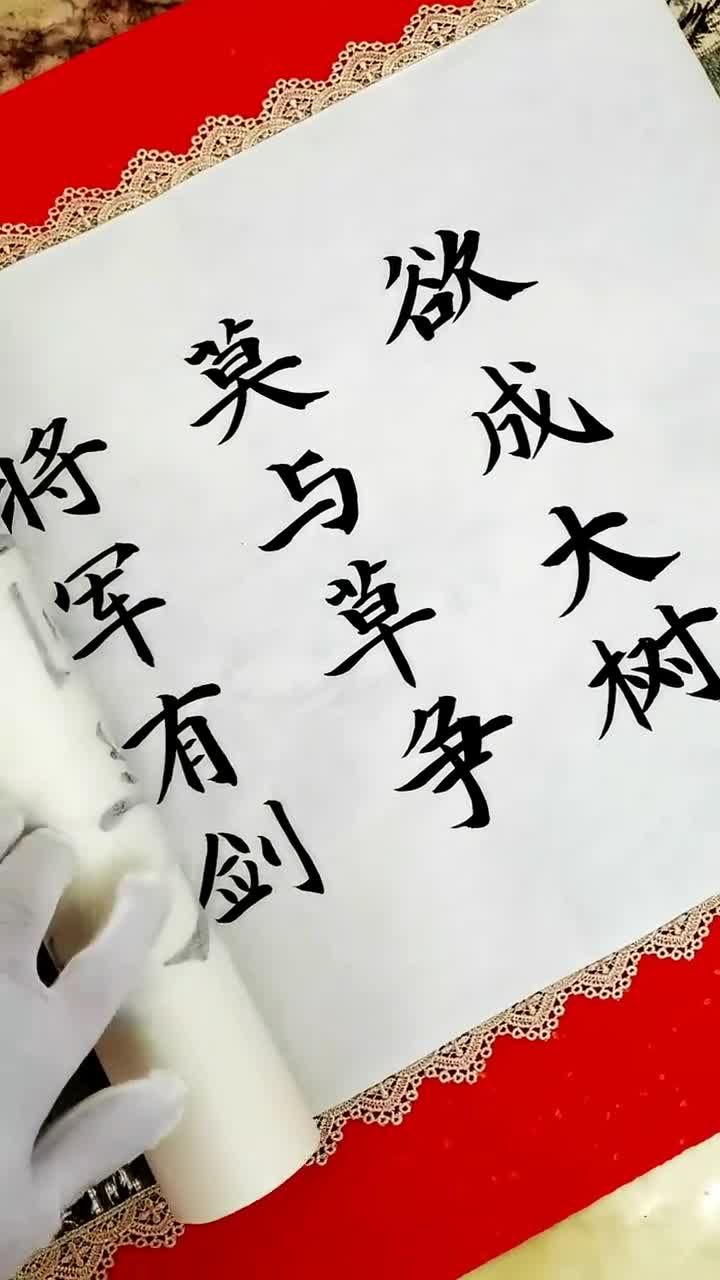 欲成大树
莫与草争
将军有剑